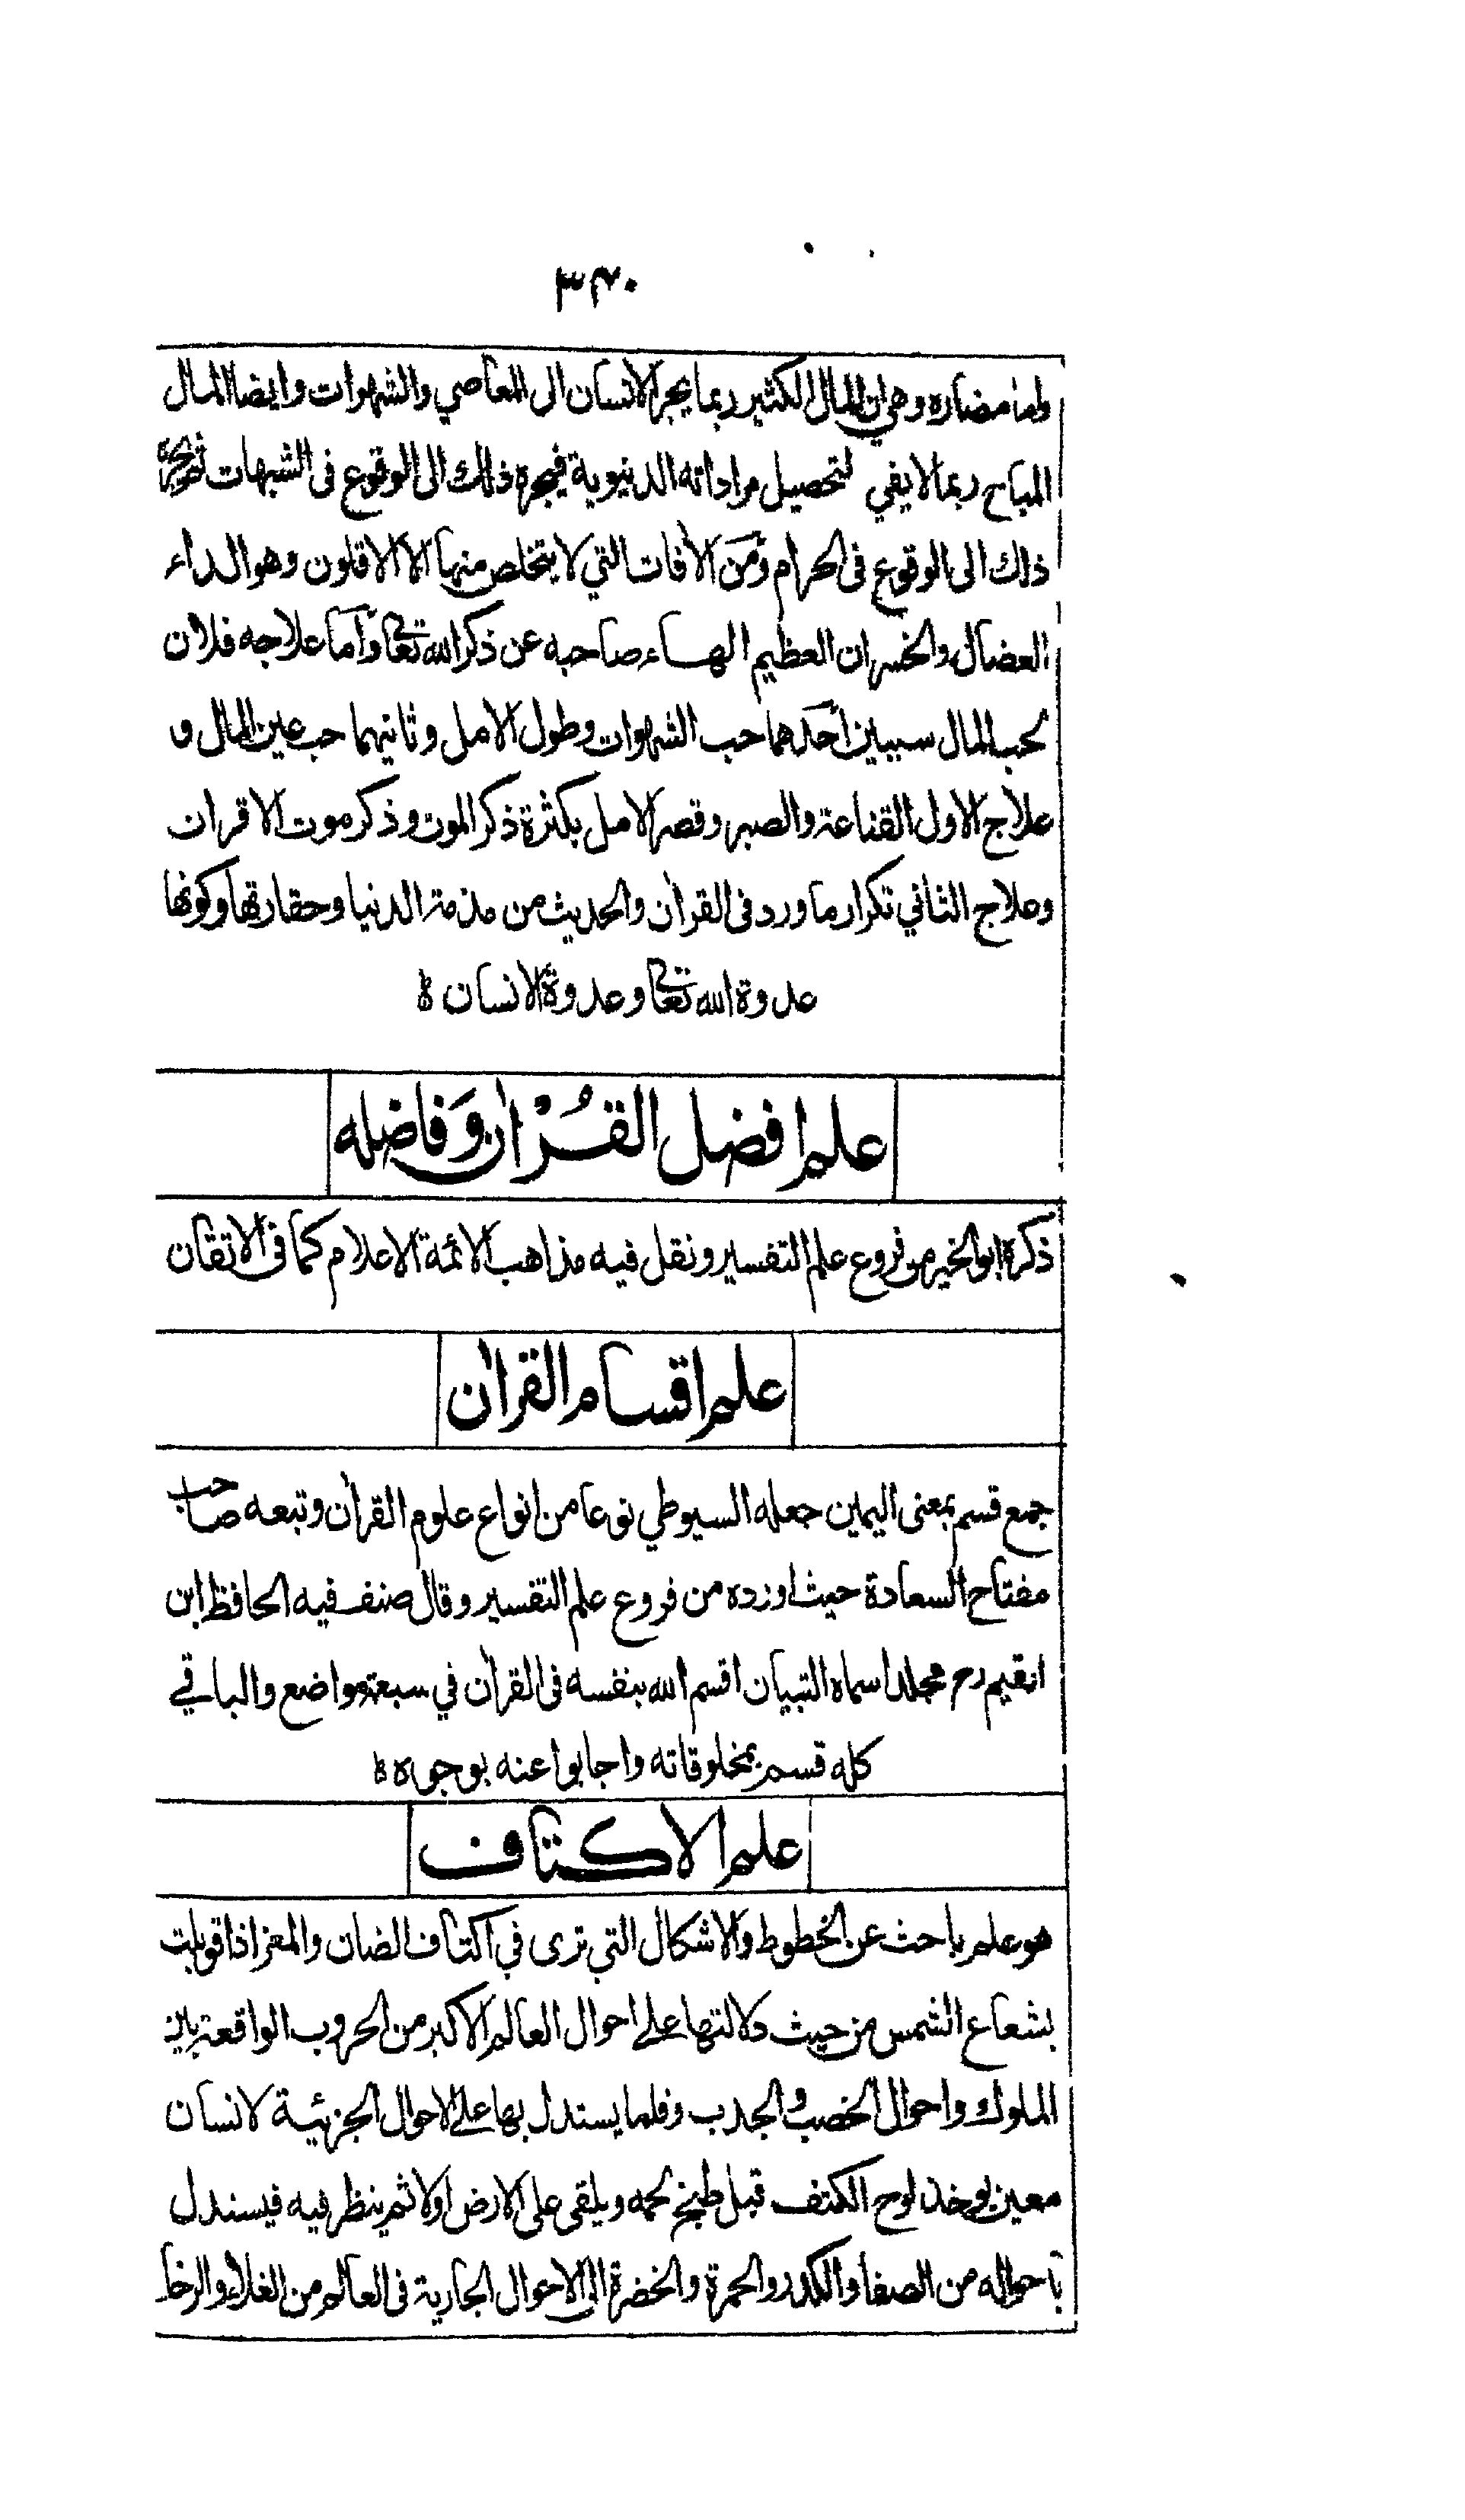 ٣٤٠
واما مضاره وهي ان المال الكثير ربما يجر الانسان الى المعاصي والشهوات وايضا المال
المباح ربما لا يفي لتحصيل مراداته الدنيوية فيجره ذلك الى الوقوع فى الشبهات ثم يجره
ذلك الى الوقوع فى الحرام ومن الافات التي لا يتخلص منها الا الاقلون وهو الداء
العضال والخسران العظيم الهاء صاحبه عن ذكر الله تعالى واما علاجه فلان
لحب المال سببين احدهما حب الشهوات وطول الامل وثانيهما حب عين المال و
علاج الاول القناعة والصبر وقصر الامل بكثرة ذكر الموت وذكر موت الاقران
وعلاج الثاني تكرار ما ورد فى القرآن والحديث من مذمة الدنيا وحقارتها وكونها
عدوة الله تعالى وعدوة الانسان
علم افضل القُرْآن وَفاضله
ذكره ابو الخير من فروع علم التفسير ونقل فيه مذاهب الائمة الاعلام كما فى الاتقان
علم اقسام القرآن
جمع قسم بمعنى اليمين جعله السيوطي نوعا من انواع علوم القرآن وتبعه صاحب
مفتاح السعادة حيث اورده من فروع علم التفسير وقال صنف فيه الحافظ ابن
القيم رح مجلدا سماه التبيان اقسم الله بنفسه فى القرآن في سبعة مواضع والباقي
كله قسم بمخلوقاته واجابوا عنه بوجوه
علم الاكتاف
هو علم باحث عن الخطوط والاشكال التي ترى في اكتاف الضان والمعز اذا قوبلت
بشعاع الشمس من حيث دلالتها على احوال العالم الاكبر من الحروب الواقعة بين
الملوك واحوال الخصب والجدب وقلما يستدل بها على الاحوال الجزئية لانسان
معين يوخذ لوح الكتف قبل طبخ لحمه ويلقى على الارض اولا ثم ينظر فيه فيستدل
باحواله من الصفا والكدر والحمرة والخضرة الى الاحوال الجارية فى العالم من الغلاء والرخا